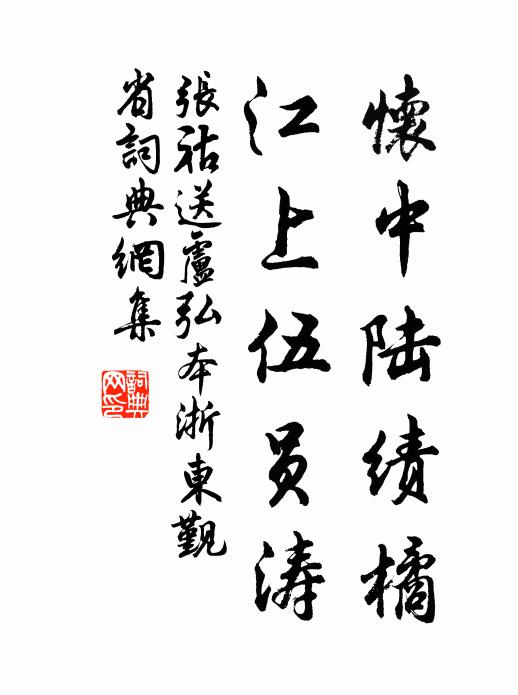 懷中陆績橘
江上伍员涛
張祜送盧弘本浙東覲
省詞典網集
詞典
网印